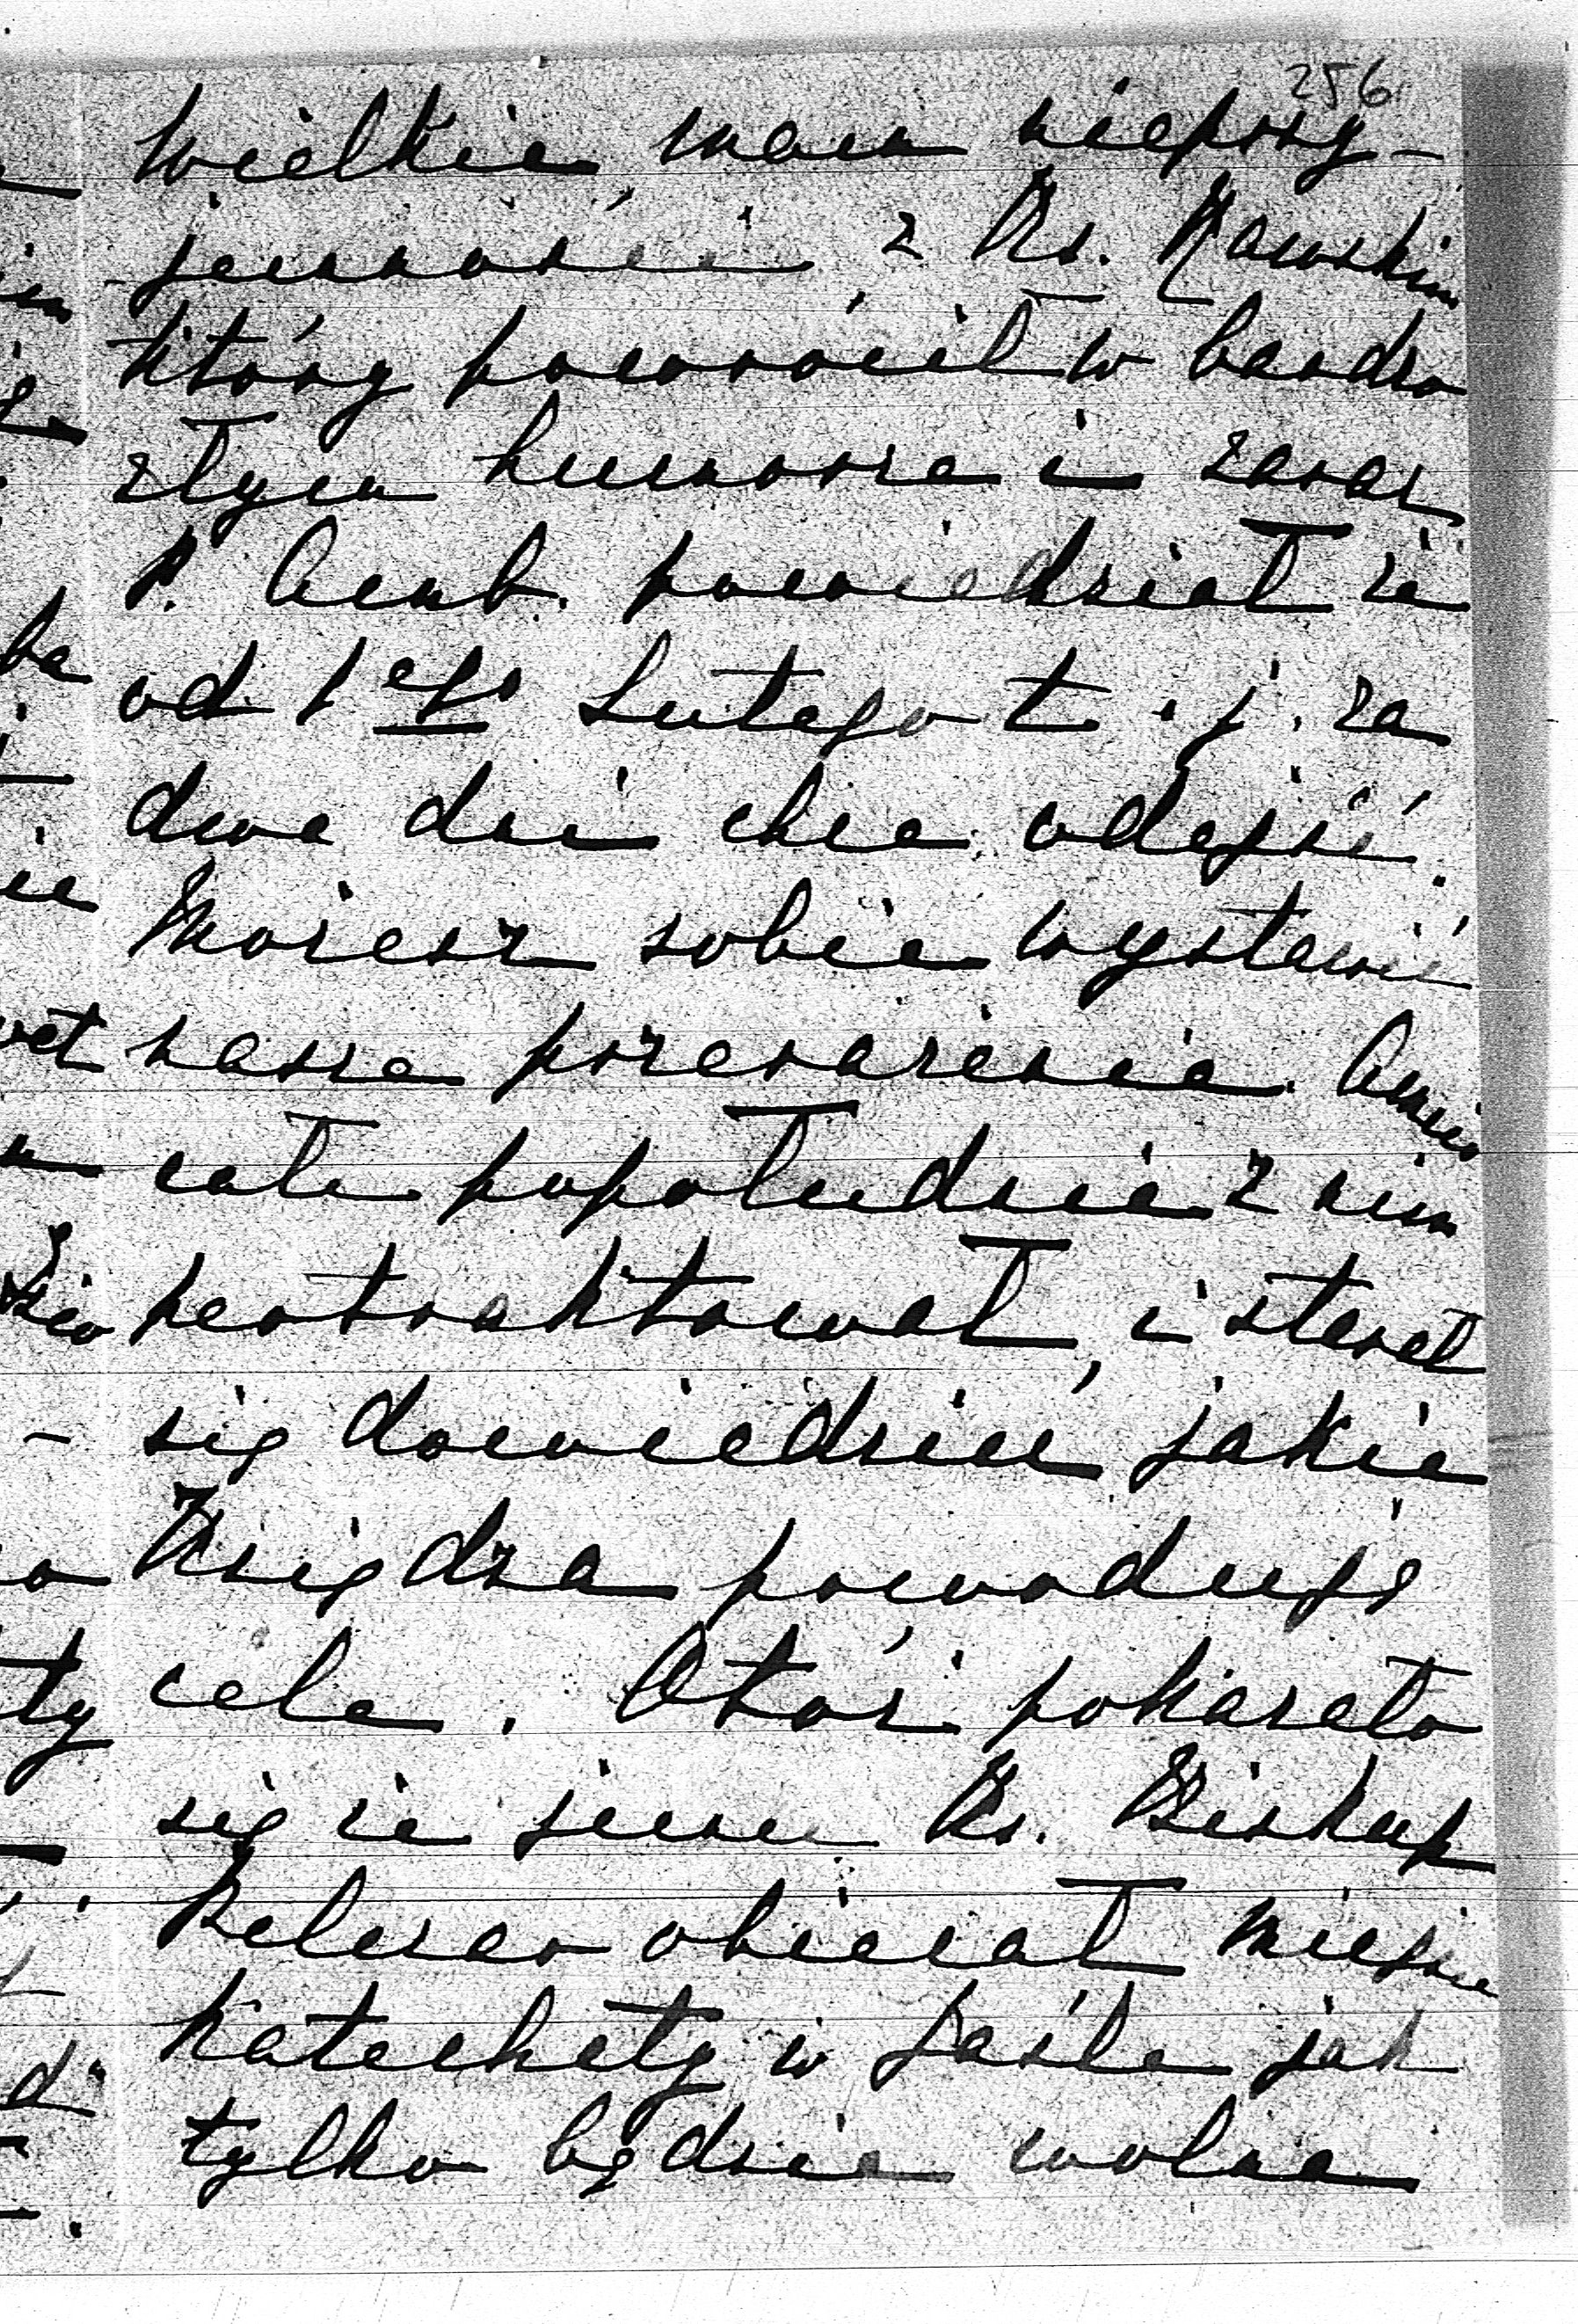 256
Wielkie, mam nieprzy-
jemności, z Ks. Rawskim
który powrócił w bardzo
złym humorze i zaraz
P. Amb. powiedział że
od 1ego Lutego t. j. za
dwa dni chce odejść.
Możesz sobie wystawić
nasze przerażenie.
całe popołudnie z nim
pertraktował, i starał
się dowiedzieć jakie
Księdza powodują
cele. Otóż pokazało
się że jemu Ks. Biskup
Pelczar obiecał miejsce
Katechety w Jaśle jak
tylko będzie wolne